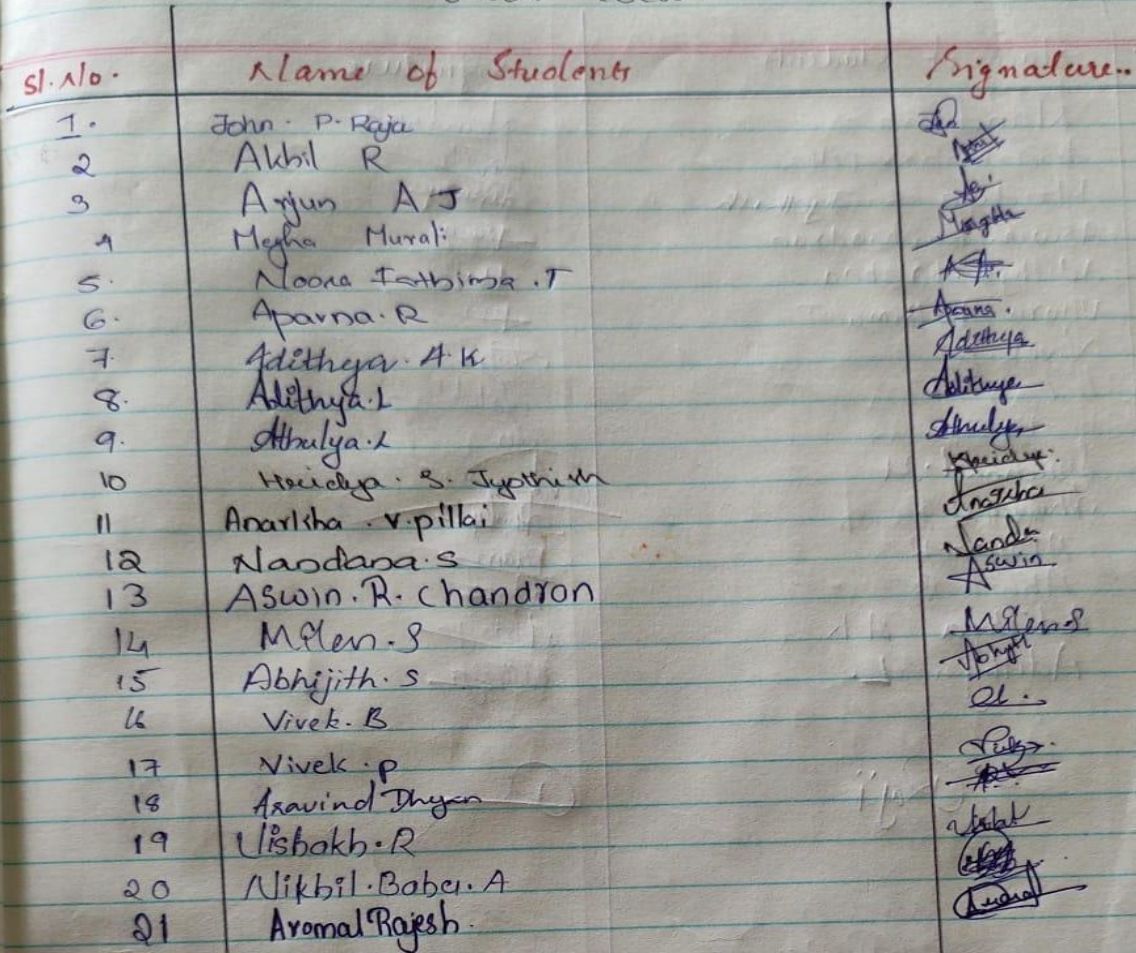 Sl. No. Name of Students Signature..
1. John. P. Raja
2 Akhil R
3 Arjun A J
4 Megha Murali Megha
5. Noora Fathima .T
6. Aparna. R Aparna.
7. Adithya. A. K Adithya
8. Adithya. L Adithya
9. Athulya. L Athulya
10 Hridya. S. Jyothish Hridya.
11 Anarkha . v. pillai Anarkha
12 Nandana. S Nanda
13 Aswin. R. Chandron Aswin
14 Milen. S Milen S
15 Abhijith. S Abhijith
16 Vivek. B
17 Vivek . p
18 Aravind Dhyan
19 Vishakh. R
20 Nikhil. Babu. A
21 Aromal Rajesh.